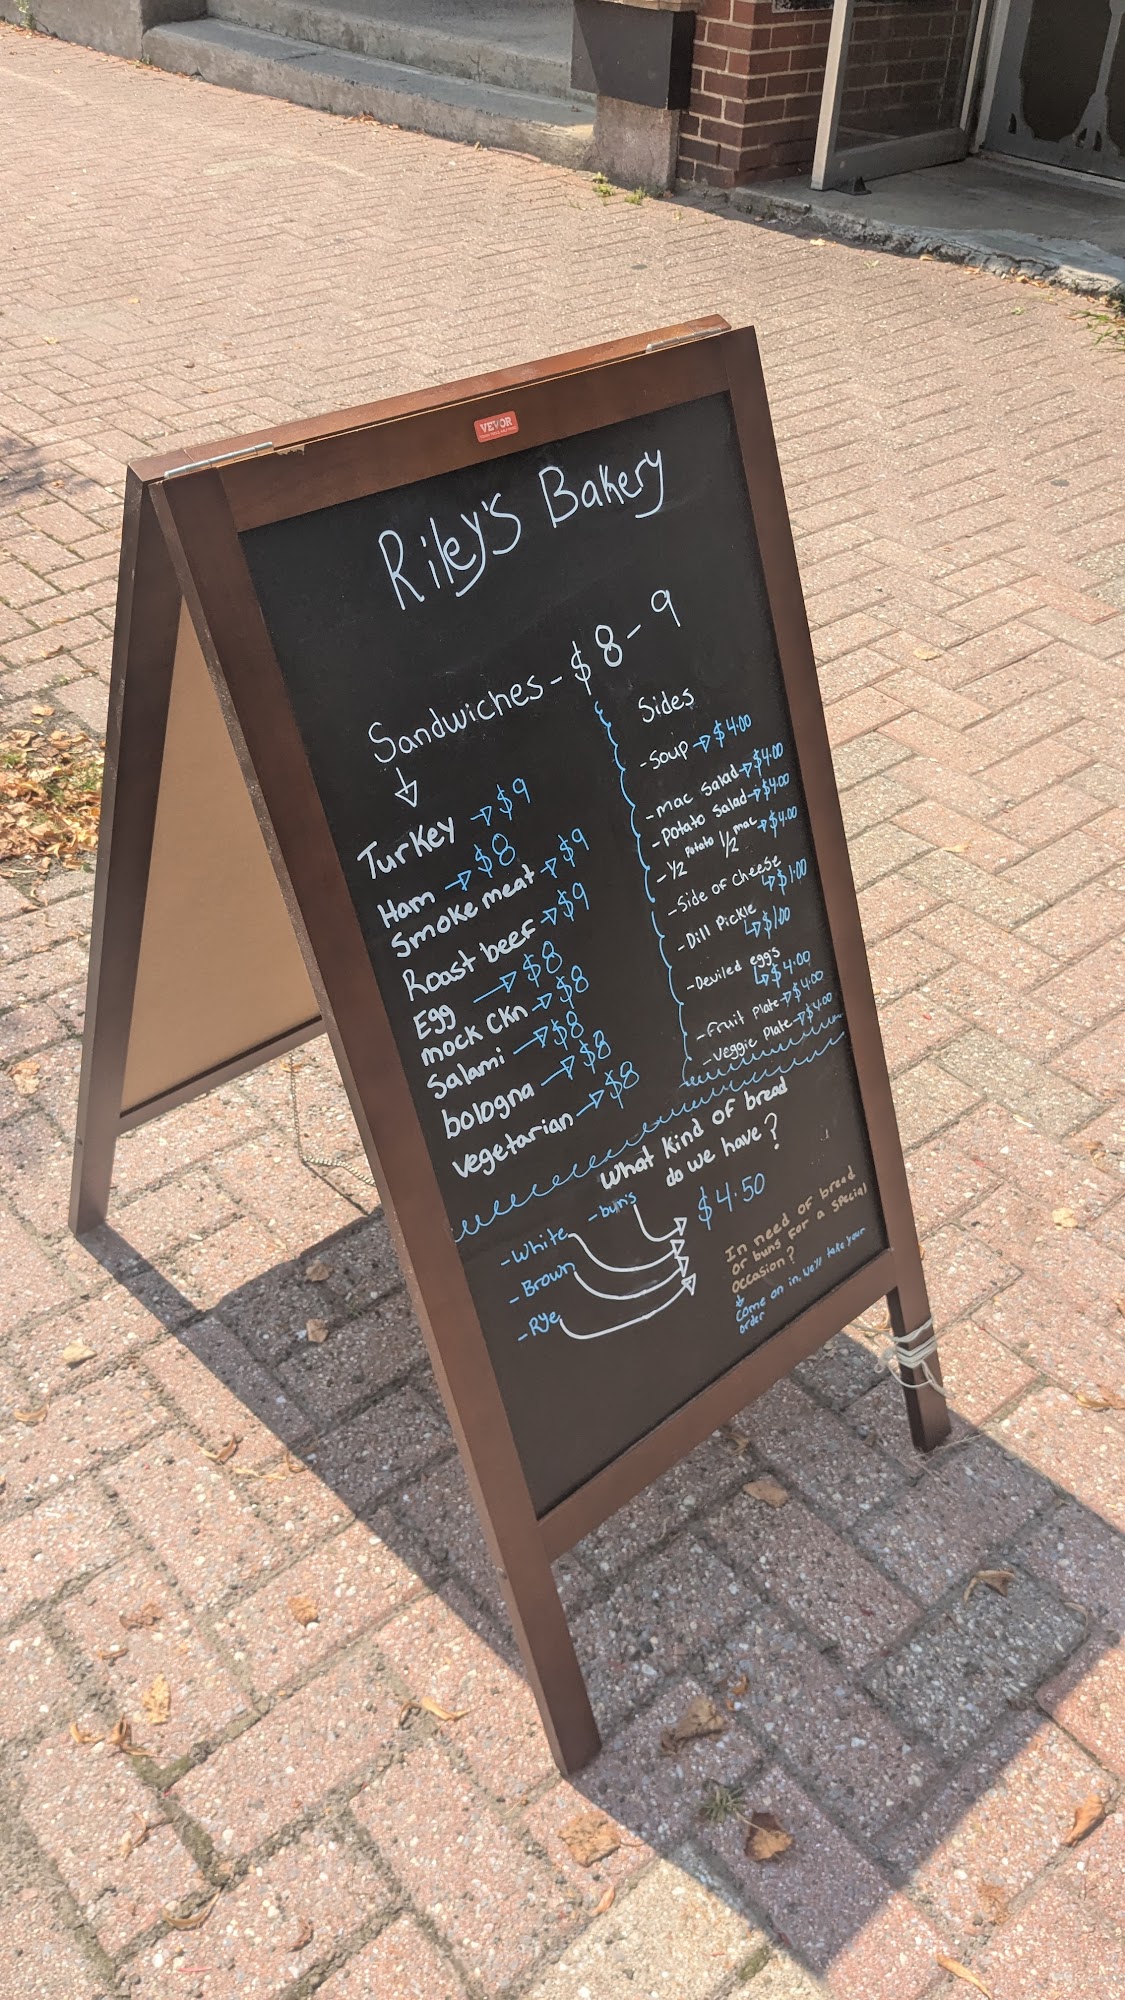 VEVOR
Riley's Bakery
Sandwiches - $8-9
Turkey → $9
Ham → $8
Smoke meat → $9
Roast beef → $9
Egg → $8
mock Ckn → $8
Salami → $8
bologna → $8
vegetarian → $8
Sides
- Soup → $4.00
- mac Salad → $4.00
- Potato Salad → $4.00
- 1/2 Potato 1/2 mac → $4.00
- Side of Cheese
↳ $1.00
- Dill Pickle
↳ $1.00
- Deviled egg's
↳ $4.00
- Fruit Plate → $4.00
- Veggie Plate → $4.00
What kind of bread
do we have?
- bun's
- White
- Brown
- Rye
$4.50
In need of bread
or buns for a special
occasion?
come on in, we'll take your
order